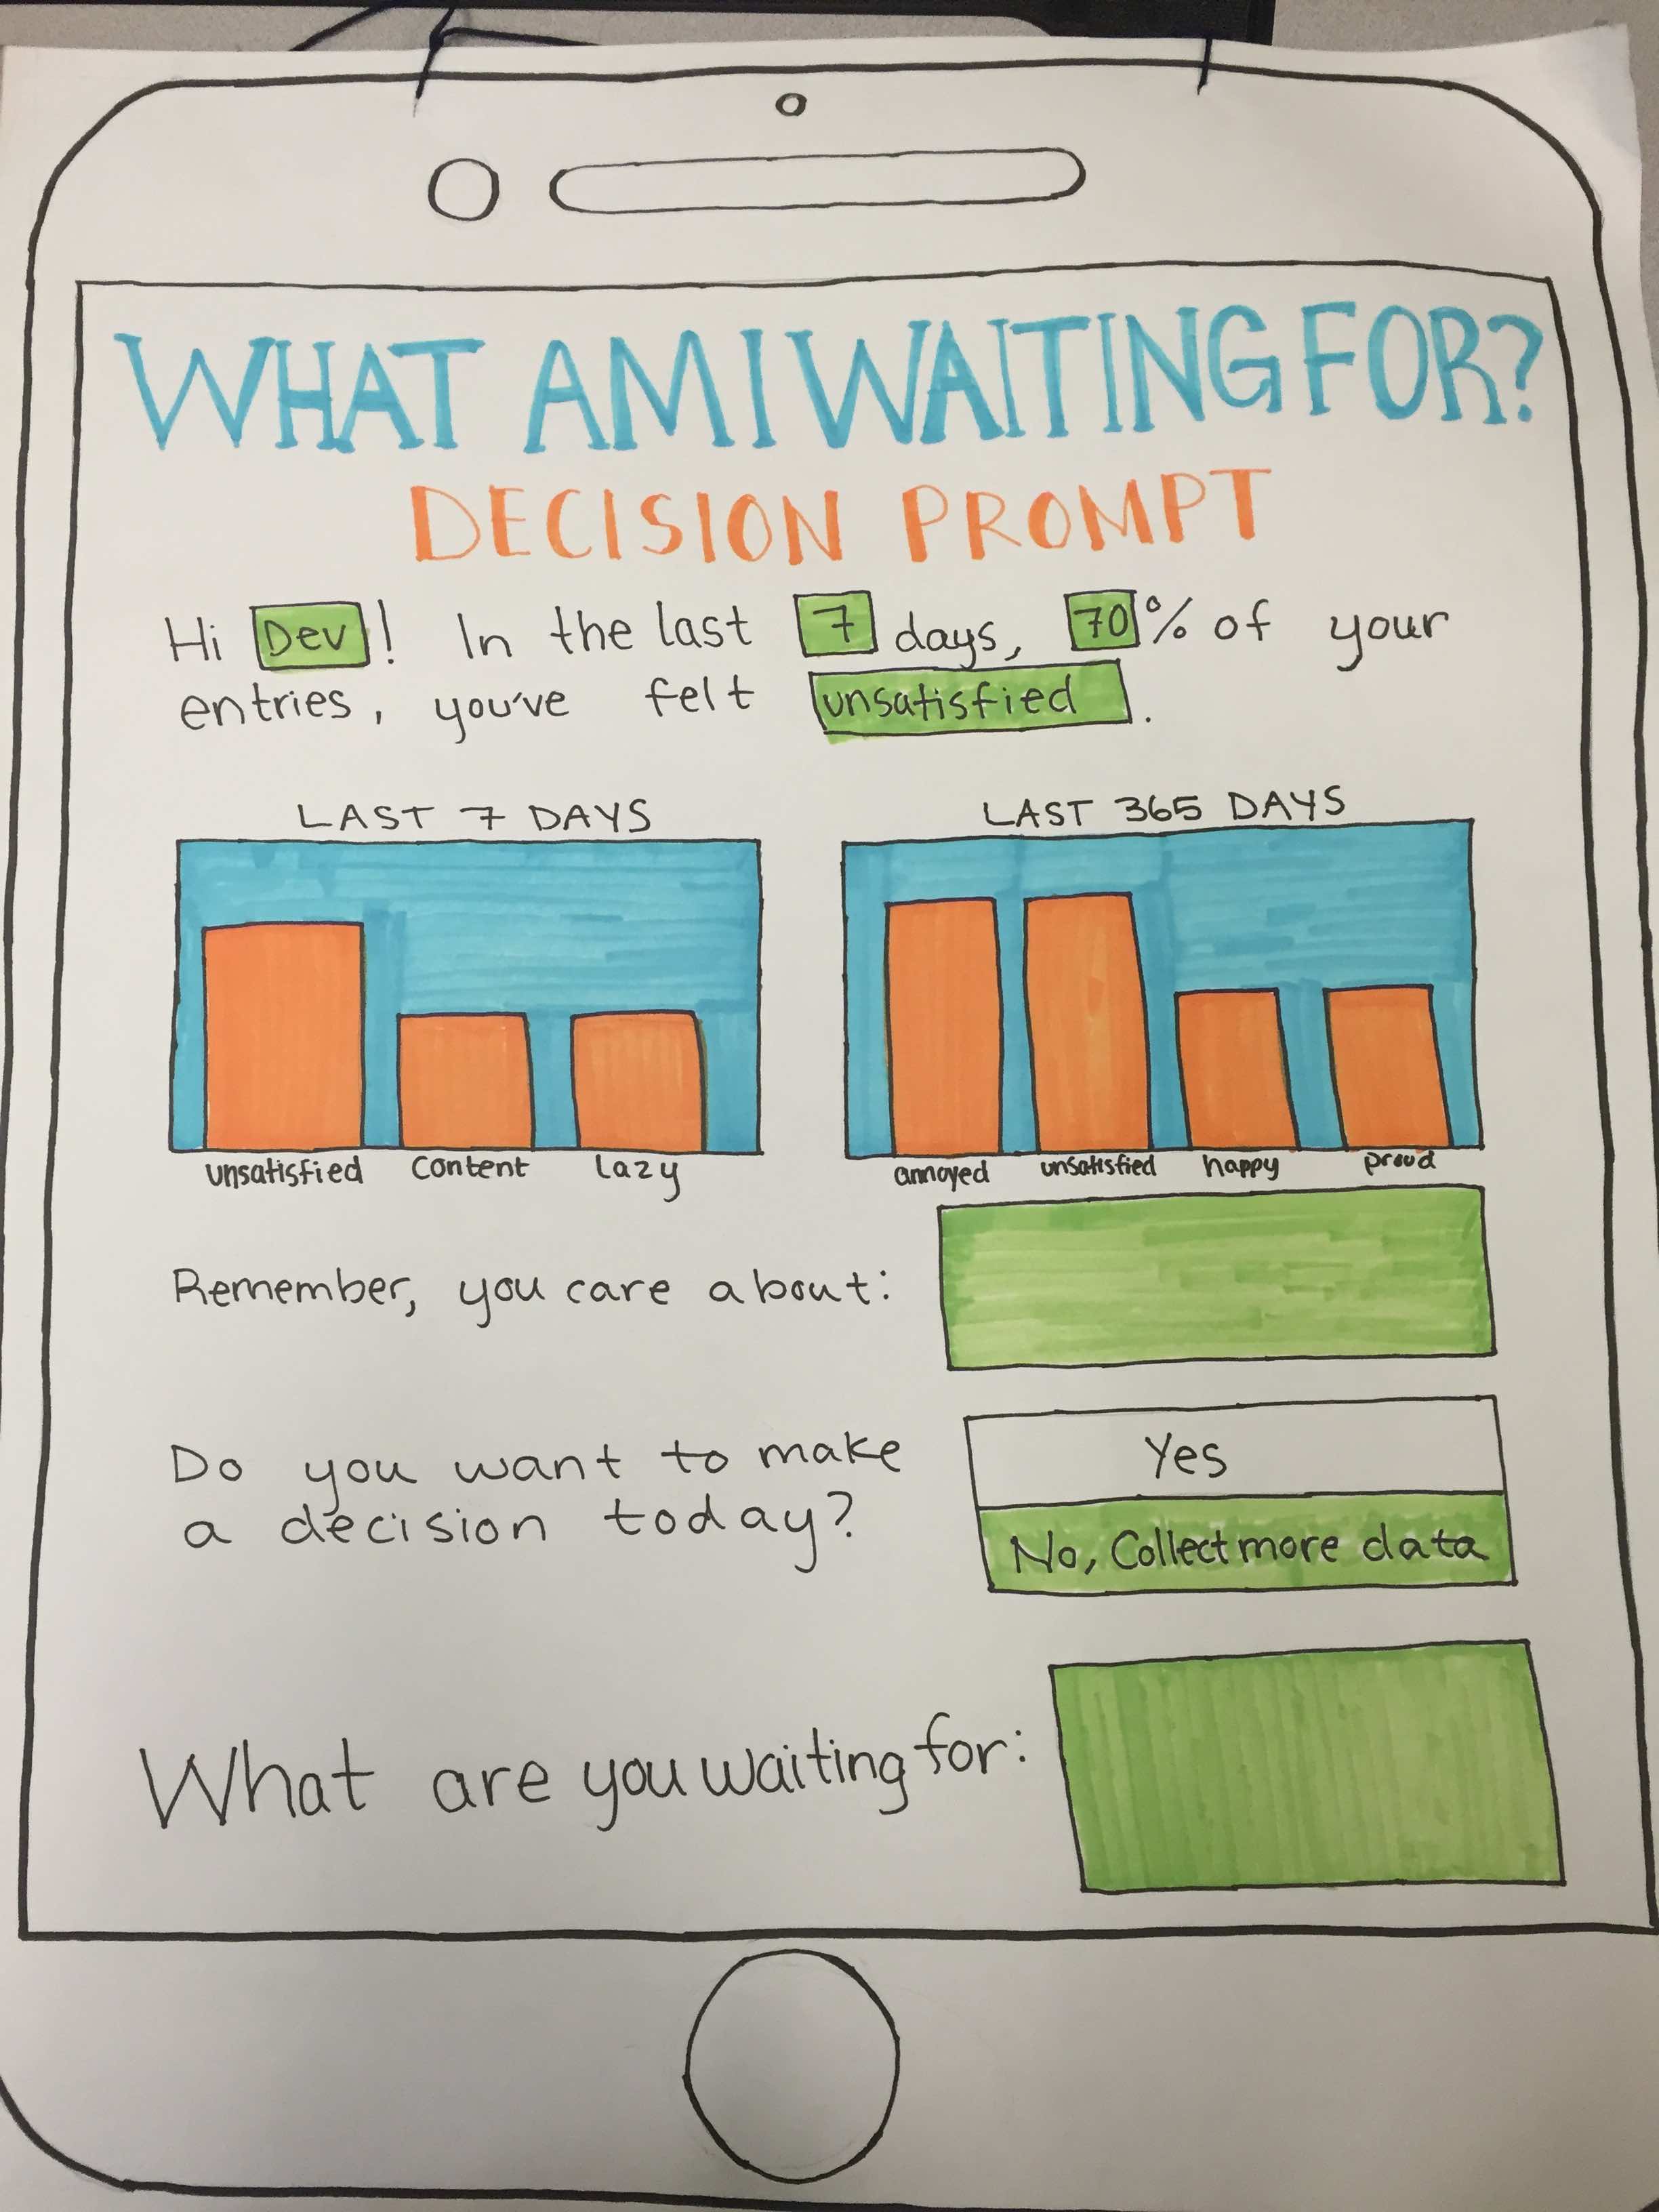 WHAT AM I WAITING FOR?
DECISION PROMPT
Hi Dev! In the last 7 days, 70% of your
entries, you've felt unsatisfied.
LAST 7 DAYS
unsatisfied content Lazy
LAST 365 DAYS
annoyed unsatisfied happy proud
Remember, you care about:
Do you want to make
a decision today?
Yes
No, Collect more data
What are you waiting for: